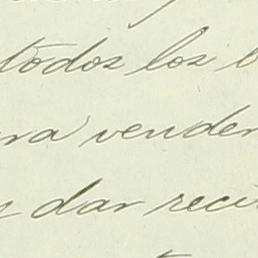 todos los
ra vender
dar reci